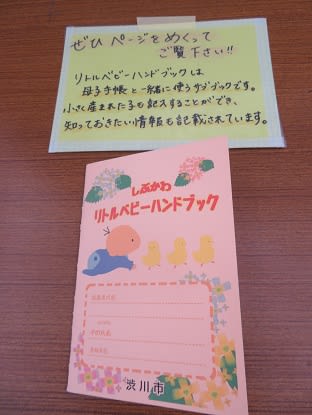 ぜひページをめくって
ご覧下さい!!
リトルベビーハンドブックは
母子手帳と一緒に使うサブブックです。
小さく産まれた子も記入することができ、
知っておきたい情報も記載されています。
しぶかわ
リトルベビーハンドブック
渋川市